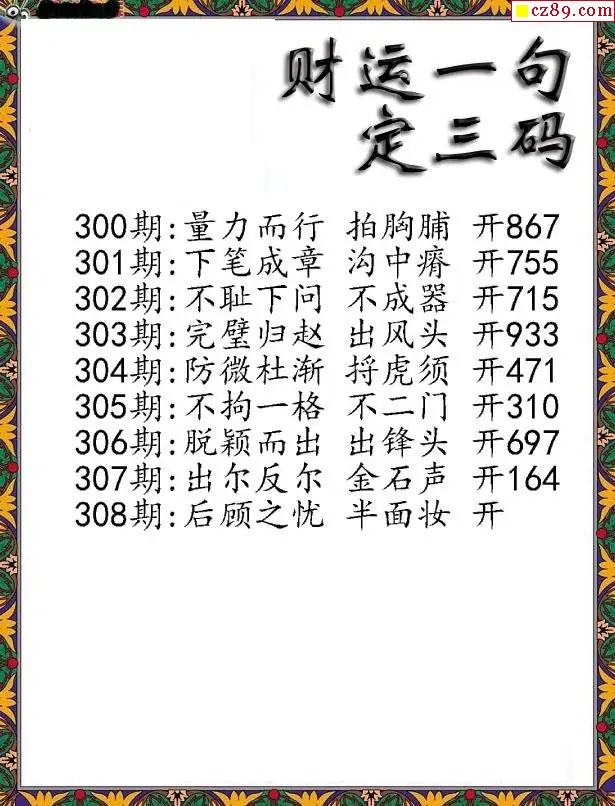 cz89.com
财运一句
定三码
300期:量力而行 拍胸脯 开867
301期:下笔成章 沟中瘠 开755
302期:不耻下问 不成器 开715
303期:完璧归赵 出风头 开933
304期:防微杜渐 捋虎须 开471
305期:不拘一格 不二门 开310
306期:脱颖而出 出锋头 开697
307期:出尔反尔 金石声 开164
308期:后顾之忧 半面妆 开